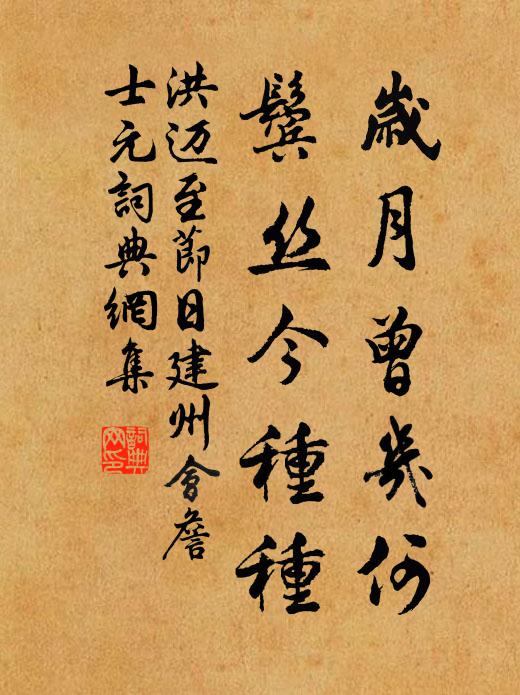 歲月曾幾何
鬓丝今種種
洪迈至節日建州會詹
士元詞典網集
詞典
网印